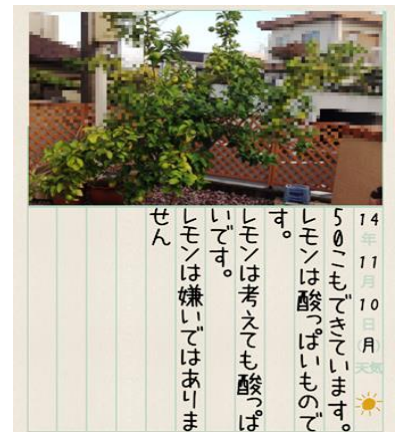 14年11月10日(月)天気
50こもできています。
レモンは酸っぱいもので
す。
レモンは考えても酸っぱ
いです。
レモンは嫌いではありま
せん